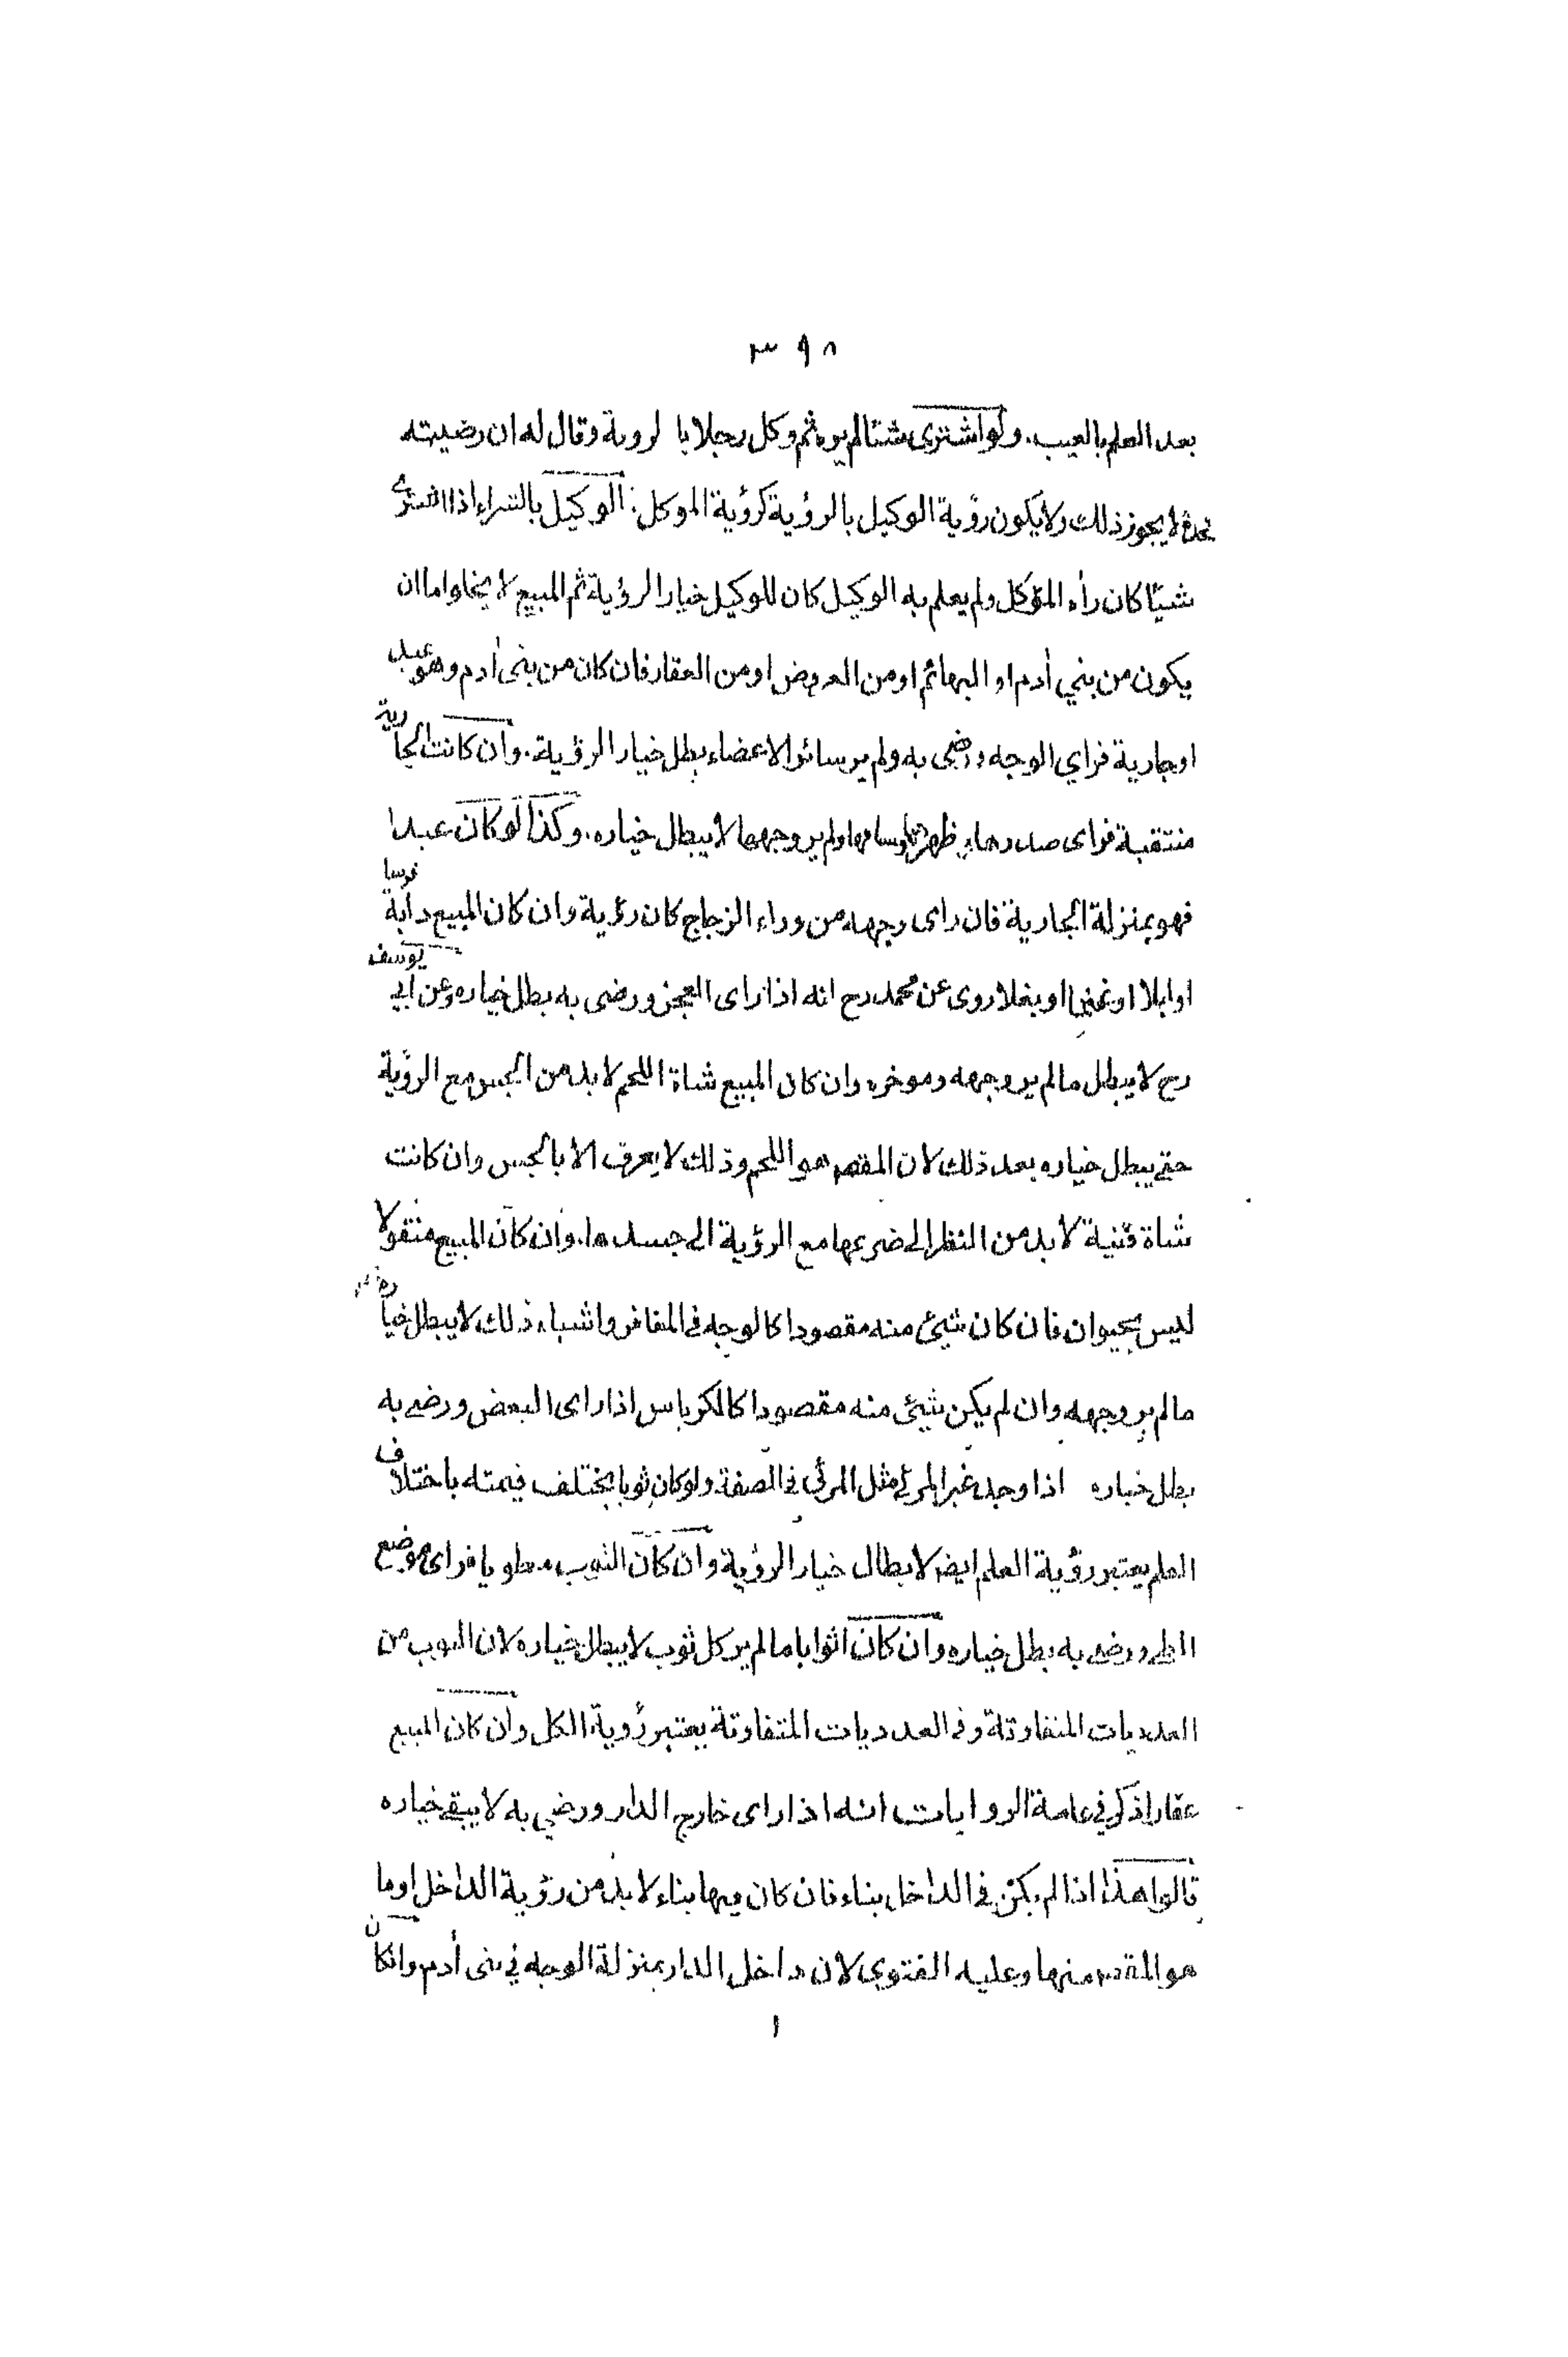 ٣٩٨
بعد العلم بالعيب. ولو اشترى شئا لم يره ثم وكل رجلا با لروية وقال له ان رضيته
فخذه لا يجوز ذلك ولا يكون رؤية الوكيل بالرؤية كرؤية الموكل. الوكيل بالشراء اذا اشترى
شيئا كان رأه المؤكل ولم يعلم به الوكيل كان للوكيل خيار الرؤية ثم المبيع لا يخلوا ما ان
يكون من بني أدم او البهائم او من العروض او من العقار فان كان من بنى أدم وهو عبد
او جارية فراي الوجه ورضى به ولم ير سائر الاعضاء بطل خيار الرؤية. وان كانت الجارية
منتقبة فراى صدرها وظهرها وساقها ولم ير وجهها لا يبطل خياره. وكذا لو كان عبدا
فهو بمنزلة الجارية فان راى وجهه من وراء الزجاج كان رؤية وان كان المبيع دابة فرسا
او ابلا او غنما او بغلا روى عن محمد رح انه اذا راى العجز ورضى به بطل خياره وعن ابي يوسف
رح لا يبطل ما لم ير وجهه ومؤخره وان كان المبيع شاة اللحم لا بد من الجس مع الرؤية
حتى يبطل خياره بعد ذلك لان المقصد هو اللحم وذلك لا يعرف الا بالجس وان كانت
شاة قنية لا بد من النظر الى ضرعها مع الرؤية الى جسدها. وان كان المبيع منقولا
ليس بحيوان فان كان شيئ منه مقصودا كالوجه فى المغافر واشباه ذلك لا يبطل خياره
ما لم ير وجهه وان لم يكن شيئ منه مقصودا كالكرباس اذا راى البعض ورضى به
بطل خياره اذا وجد غير المرئى مثل المرئى فى الصفة ولو كان ثوبا يختلف قيمته باختلاف
العلم يعتبر رؤية العلم ايضا لابطال خيار الرؤية وان كان الثوب مطويا فراى موضع
الطى ورضى به بطل خياره وان كان اثوابا ما لم ير كل ثوب لا يبطل خياره لان الثوب من
العدديات المتفاوتة وفى العدديات المتفاوتة يعتبر رؤية الكل وان كان المبيع
عقارا ذكر في عامة الروايات انه اذا راى خارج الدار ورضي به لا يبقى خياره
قالوا هذا اذا لم يكن فى الداخل بناء فان كان فيها بناء لا بد من رؤية الداخل او ما
هو المقصد منها وعليه الفتوي لان داخل الدار بمنزلة الوجه في بنى أدم وان كان